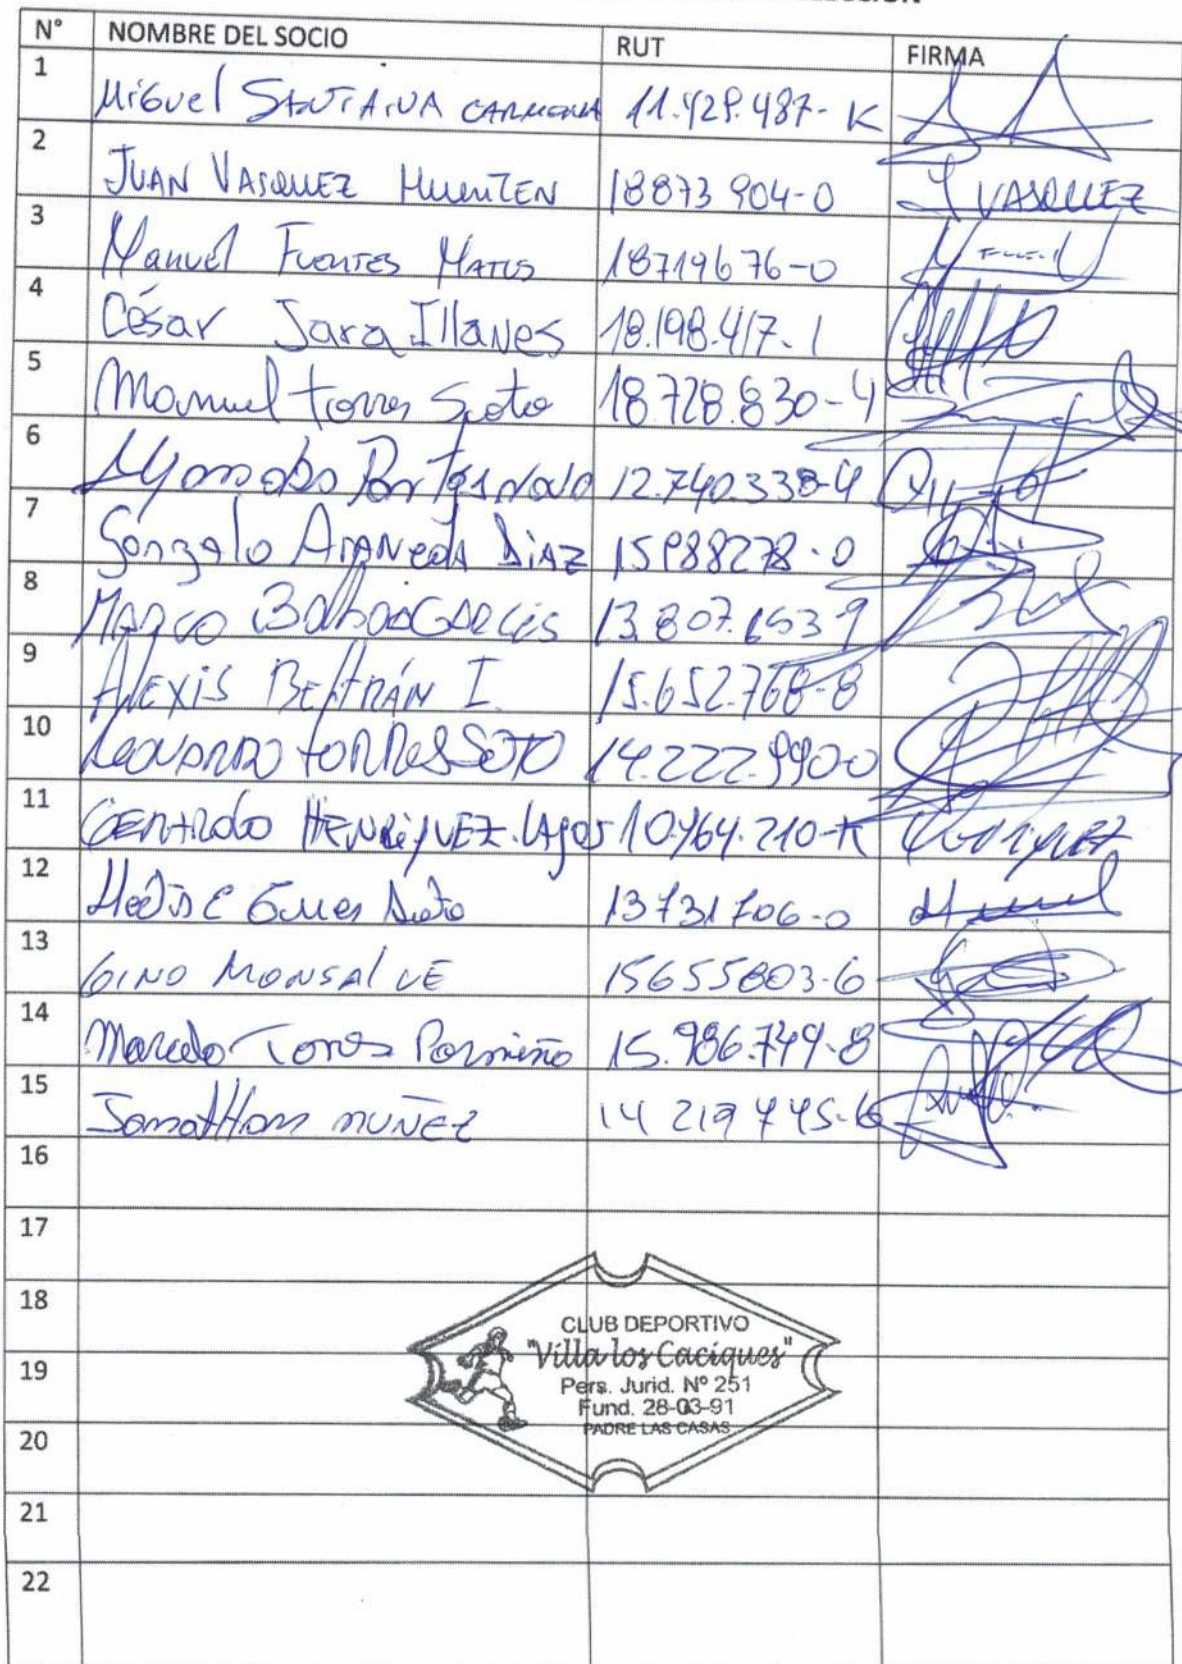 N° NOMBRE DEL SOCIO RUT FIRMA
1 Miguel SANTANA CARMONA 11.429.487-K
2 JUAN VASQUEZ HUENTEN 18873904-0 J VASQUEZ
3 Manuel Fuentes Matus 18719676-0
4 César Jara Illanes 18.198.417-1
5 Manuel torres Soto 18.728.830-4
6 12.740.338-4
7 Gonzalo ARANEDA DiAZ 15988278-0
8 MARCO Balboa GARCES 13.807.653-9
9 ALEXIS BELTRÁN I. 15.652.768-8
10 LEONARDO TORRES SOTO 14.222.990-0
11 HENRIQUEZ LAgos 10.464.210-K
12 Soto 13731706-0
13 GINO MONSALVE 15655803-6
14 Marcelo Torres 15.986.749-8
15 Jonatthan MUÑEZ 14 219 745-6
16
17
18
19
20
21
22
CLUB DEPORTIVO
"Villa los Caciques"
Pers. Jurid. Nº 251
Fund. 28-03-91
PADRE LAS CASAS